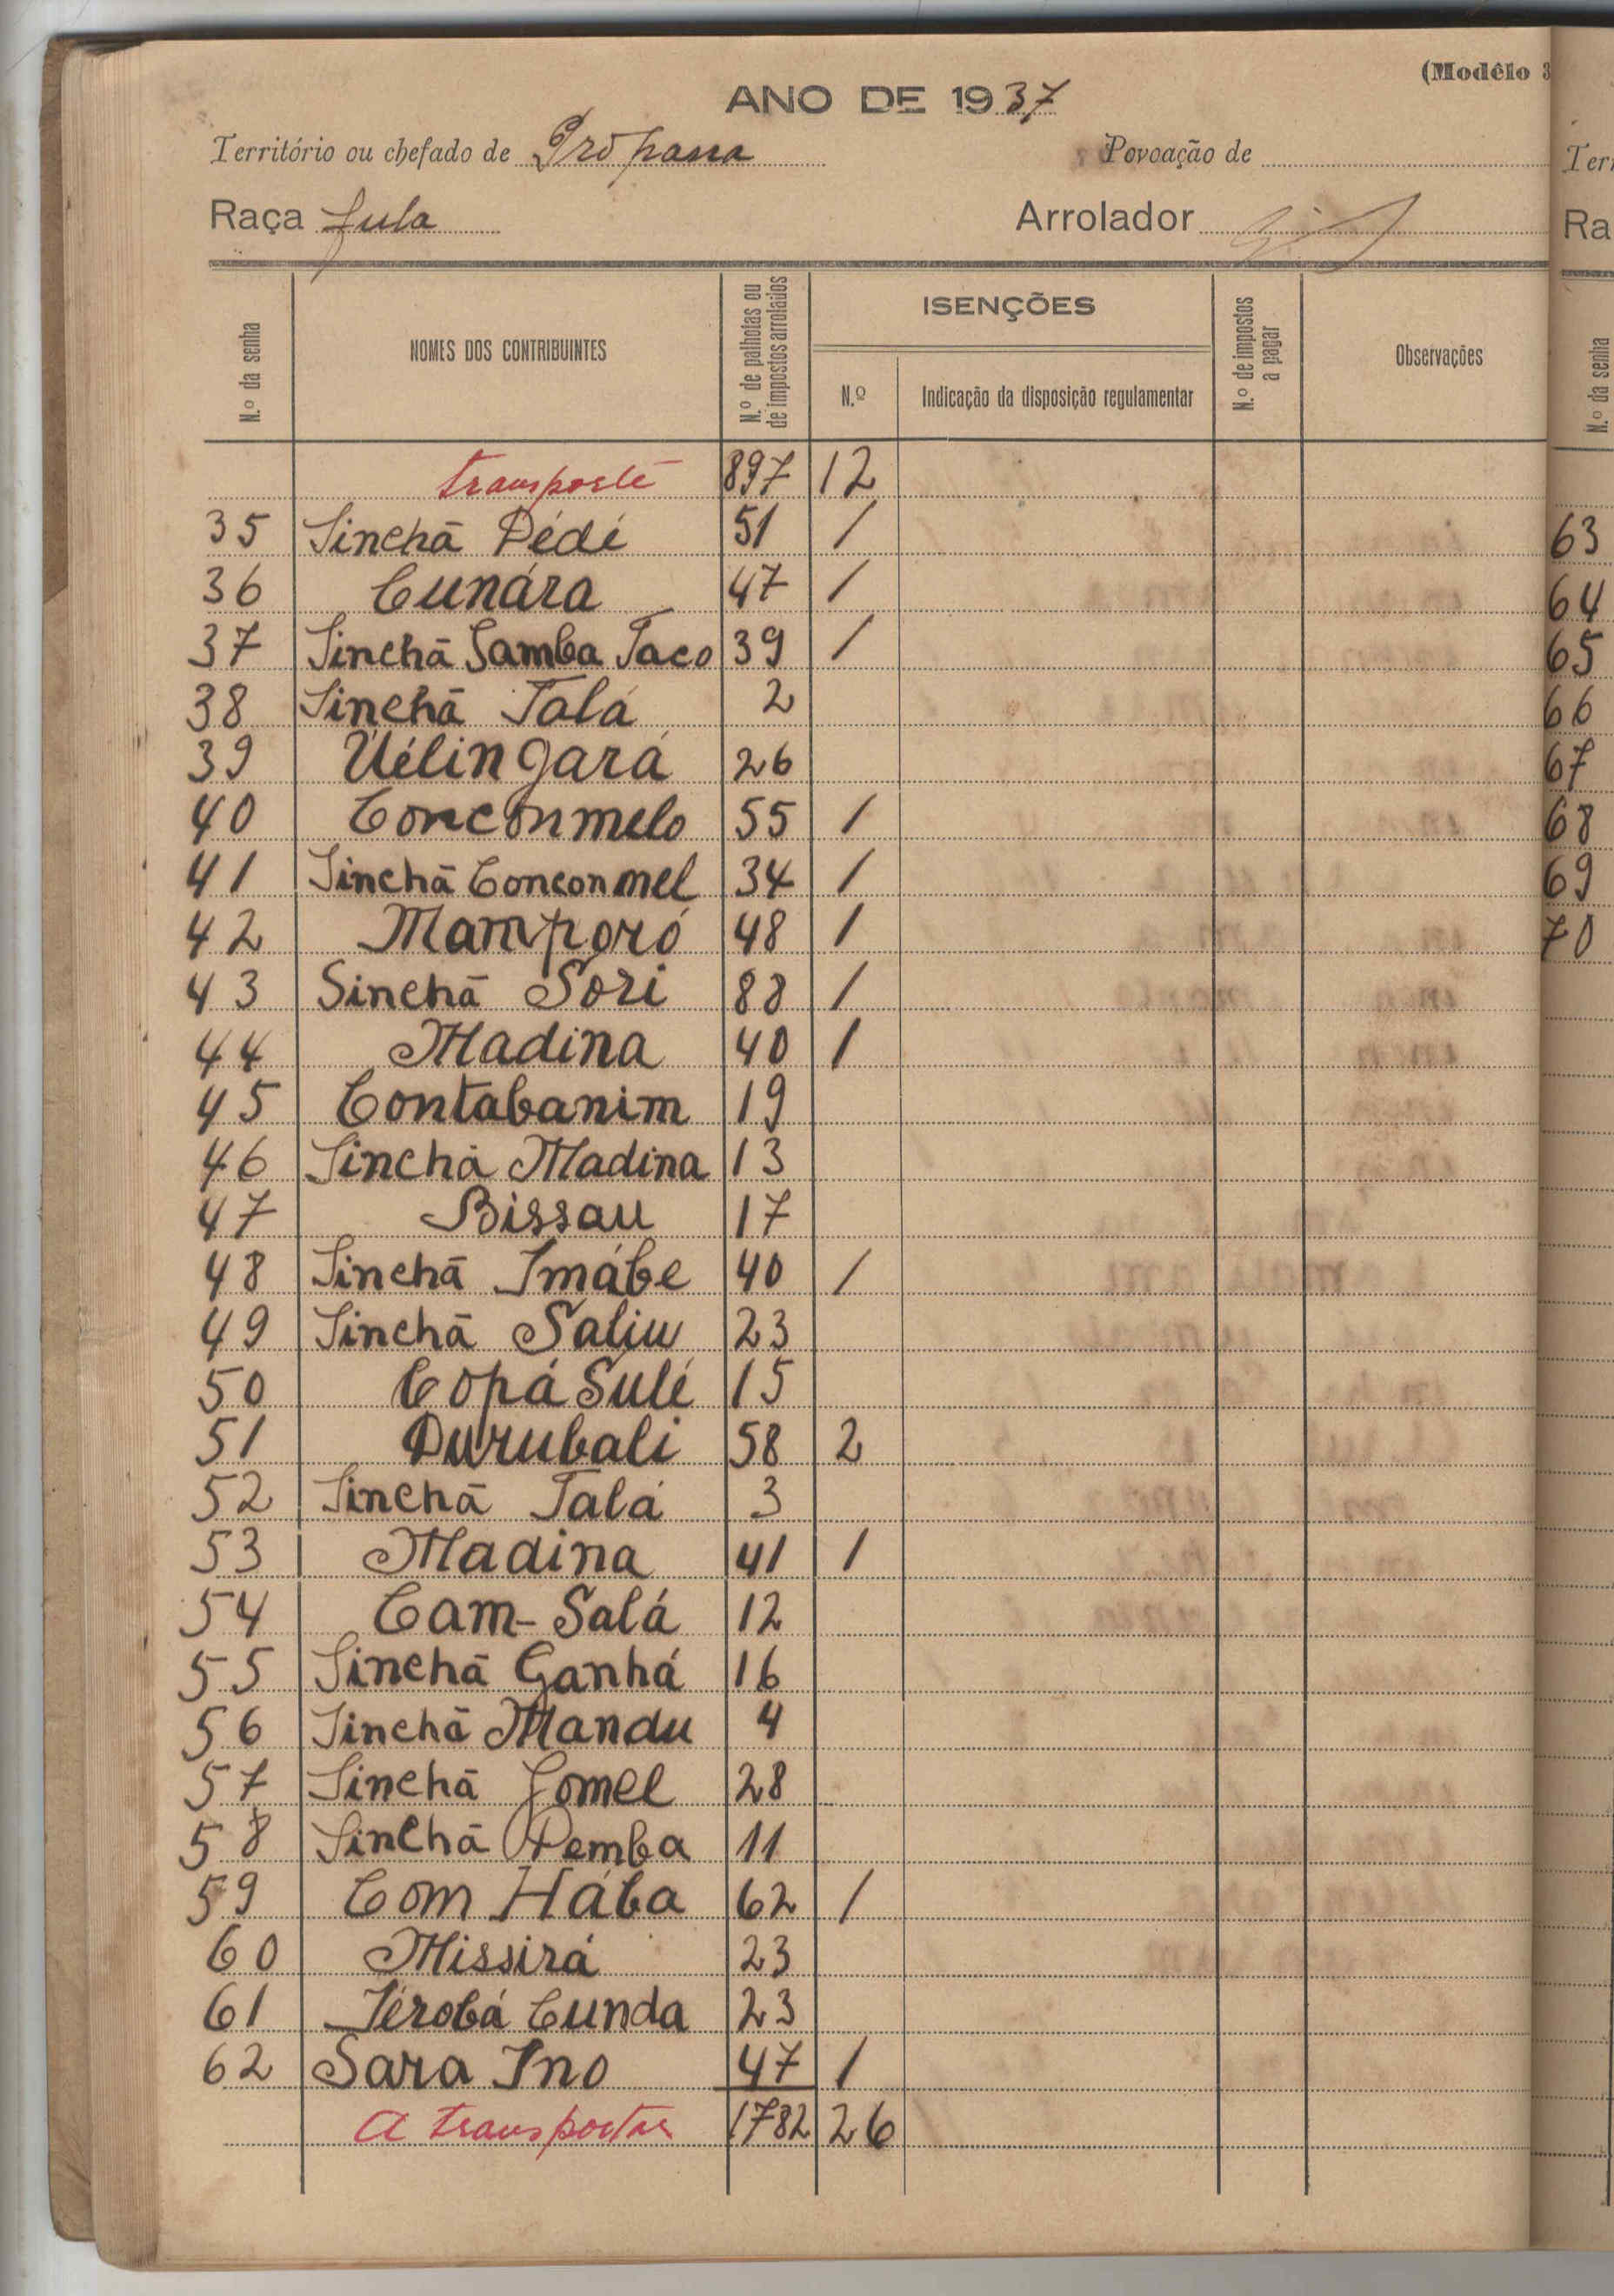 (Modêlo 3
ANO DE 1937
Território ou chefado de Propana Povoação de
Raça fula Arrolador
N.º da senha NOMES DOS CONTRIBUINTES N.º de palhotas ou de impostos arrolados ISENÇÕES N.º Indicação da disposição regulamentar N.º de impostos a pagar Observações
transporte 897 12
35 Sinchã Dédé 51 1
36 Cunára 47 1
37 Sinchã Samba Taco 39 1
38 Sinchã Talá 2
39 Uélingará 26
40 Conconmelo 55 1
41 Sinchã Conconmel 34 1
42 Mamporó 48 1
43 Sinchã Sóri 88 1
44 Madina 40 1
45 Contabanim 19
46 Sinchã Madina 13
47 Bissau 17
48 Sinchã Imábe 40 1
49 Sinchã Saliu 23
50 Copá Sulé 15
51 Durubali 58 2
52 Sinchã Talá 3
53 Madina 41 1
54 Cam-Salá 12
55 Sinchã Ganhá 16
56 Sinchã Mandu 4
57 Sinchã Jomel 28
58 Sinchã Demba 11
59 Com Hába 62 1
60 Missirá 23
61 Jérobá Cunda 23
62 Sara Ino 47 1
A transportar 1782 26
Terr
Ra
N.º da senha
63
64
65
66
67
68
69
70